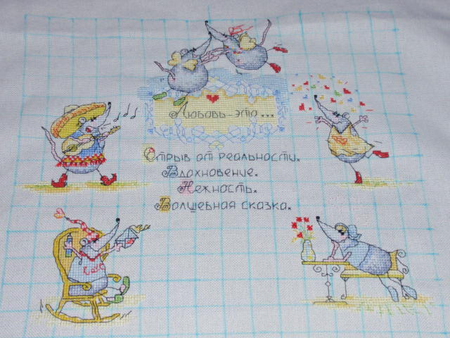 Любовь-это...
Отрыв от реальности.
Вдохновение.
Нежность.
Волшебная сказка.